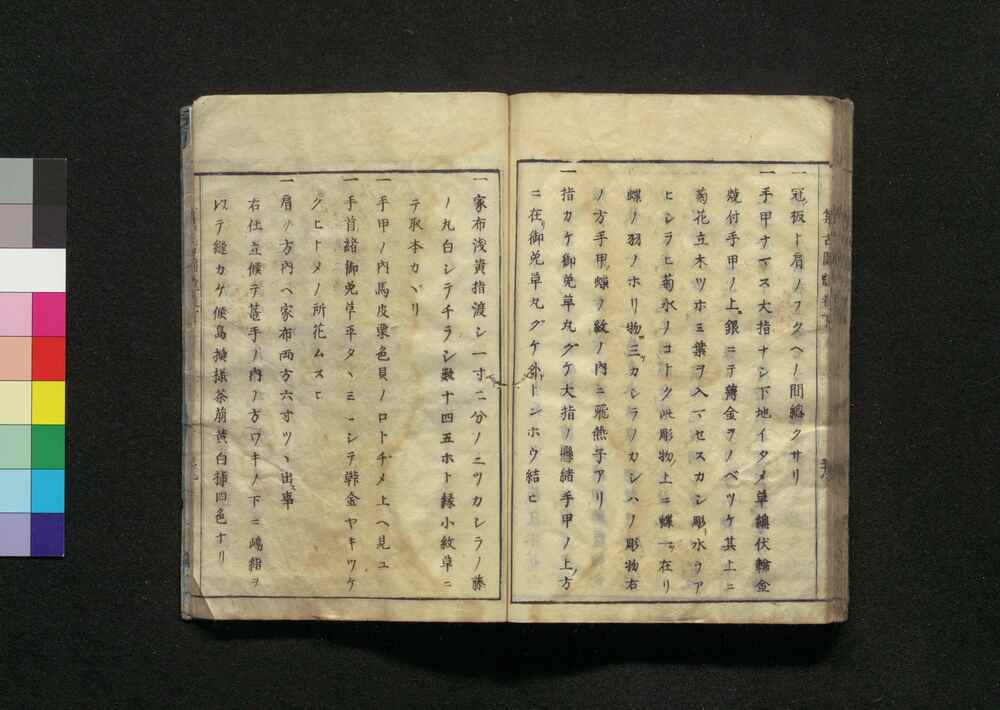 一冠板ト肩ノフタヘノ間鏈クサリ
一手甲ナマス大指ナシ下地イタメ革鎮伏輪金
焼付手甲ノ上銀ニテ薄金ヲノベツケ其上ニ
菊花立木ツホミ葉ヲ入マセスカシ彫水ウア
ヒシラヒ菊水ノコトク此彫物上ニ蝶一在リ
蝶ノ羽ノホリ物三カシラヲカシハノ彫物右
ノ方手甲蝶ノ紋ノ内ニ飛燕子アリ
一指カケ御免革丸グケ大指ノ懸緒手甲ノ上方
ニ在御免革丸グケ外トンホウ結ヒ
一家布浅黄指渡シ一寸二分ノ三ツカシラノ藤
ノ丸白シテチラシ数十四五ホト縁小紋革ニ
テ取本カヽリ
一手甲ノ内馬皮栗色貝ノロトヂメ上ヘ見ユ
一手首緒御免革平タヽミニシテ幹金ヤキツケ
クヒトメノ所花ムスヒ
一肩ノ方内ヘ家布両方六寸ツヽ出事
右仕立候テ籠手ノ内ノ方ワキノ下ニ嶋絹ヲ
以テ縫カケ候嶋摸様茶萠黄白薄四色ナリ